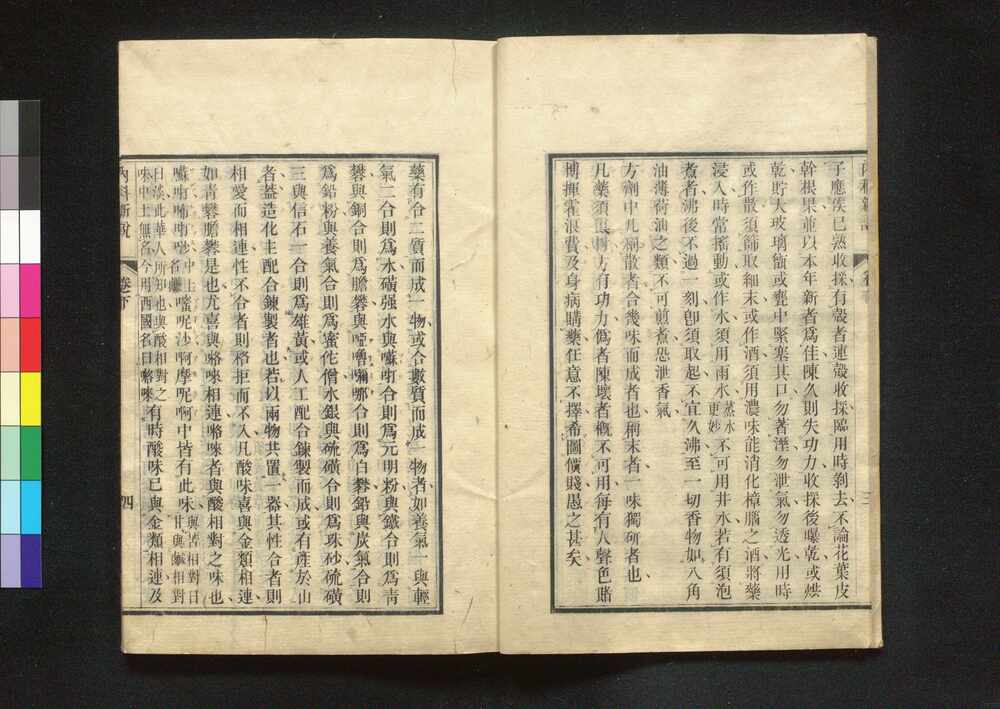 子應俟已熟收採有殼者連殼收採臨用時剝去不論花葉皮
幹根果並以本年新者爲佳陳久則失功力收採後曝乾或烘
乾貯大玻璃瓿或甕中緊塞其口勿著溼勿泄氣勿透光用時
或作散須篩取細末或作酒須用濃味能消化樟腦之酒將藥
浸入時當搖動或作水須用雨水蒸水更妙不可用井水若有須泡
煮者沸後不過一刻卽須取起不宜久沸至一切香物如八角
油薄荷油之類不可煎煮恐泄香氣
方劑中凡稱散者合幾味而成者也稱末者一味獨研者也
凡藥須眞方有功力僞者陳壞者槪不可用每有人聲色賭
博揮霍浪費及身病購藥任意不擇希圖價賤愚之甚矣
三
藥有合二質而成一物或合數質而成一物者如養氣一與輕
氣二合則爲水磺强水與𠿝𠯈合則爲元明粉與鐵合則爲靑
礬與銅合則爲膽礬與啞嚕嘣哪合則爲白礬鉛與炭氣合則
爲鉛粉與養氣合則爲蜜佗僧水銀與硫磺合則爲硃砂硫磺
三與信石一合則爲雄黃或人工配合鍊製而成或有產於山
者葢造化主配合鍊製者也若以兩物共置一器其性合者則
相愛而相連性不合者則格拒而不入凡酸味喜與金類相連
如靑礬膽礬是也尤喜與𠲖唻相連𠲖唻者與酸相對之味也
沙中上嘧呢沙啊摩呢啊中皆有此味與苦相對曰甘與鹹相對
曰淡此華人所知也與酸相對之
味中土無名今用西國名曰𠲖唻有時酸味已與金類相連及
內科新說 卷下 四